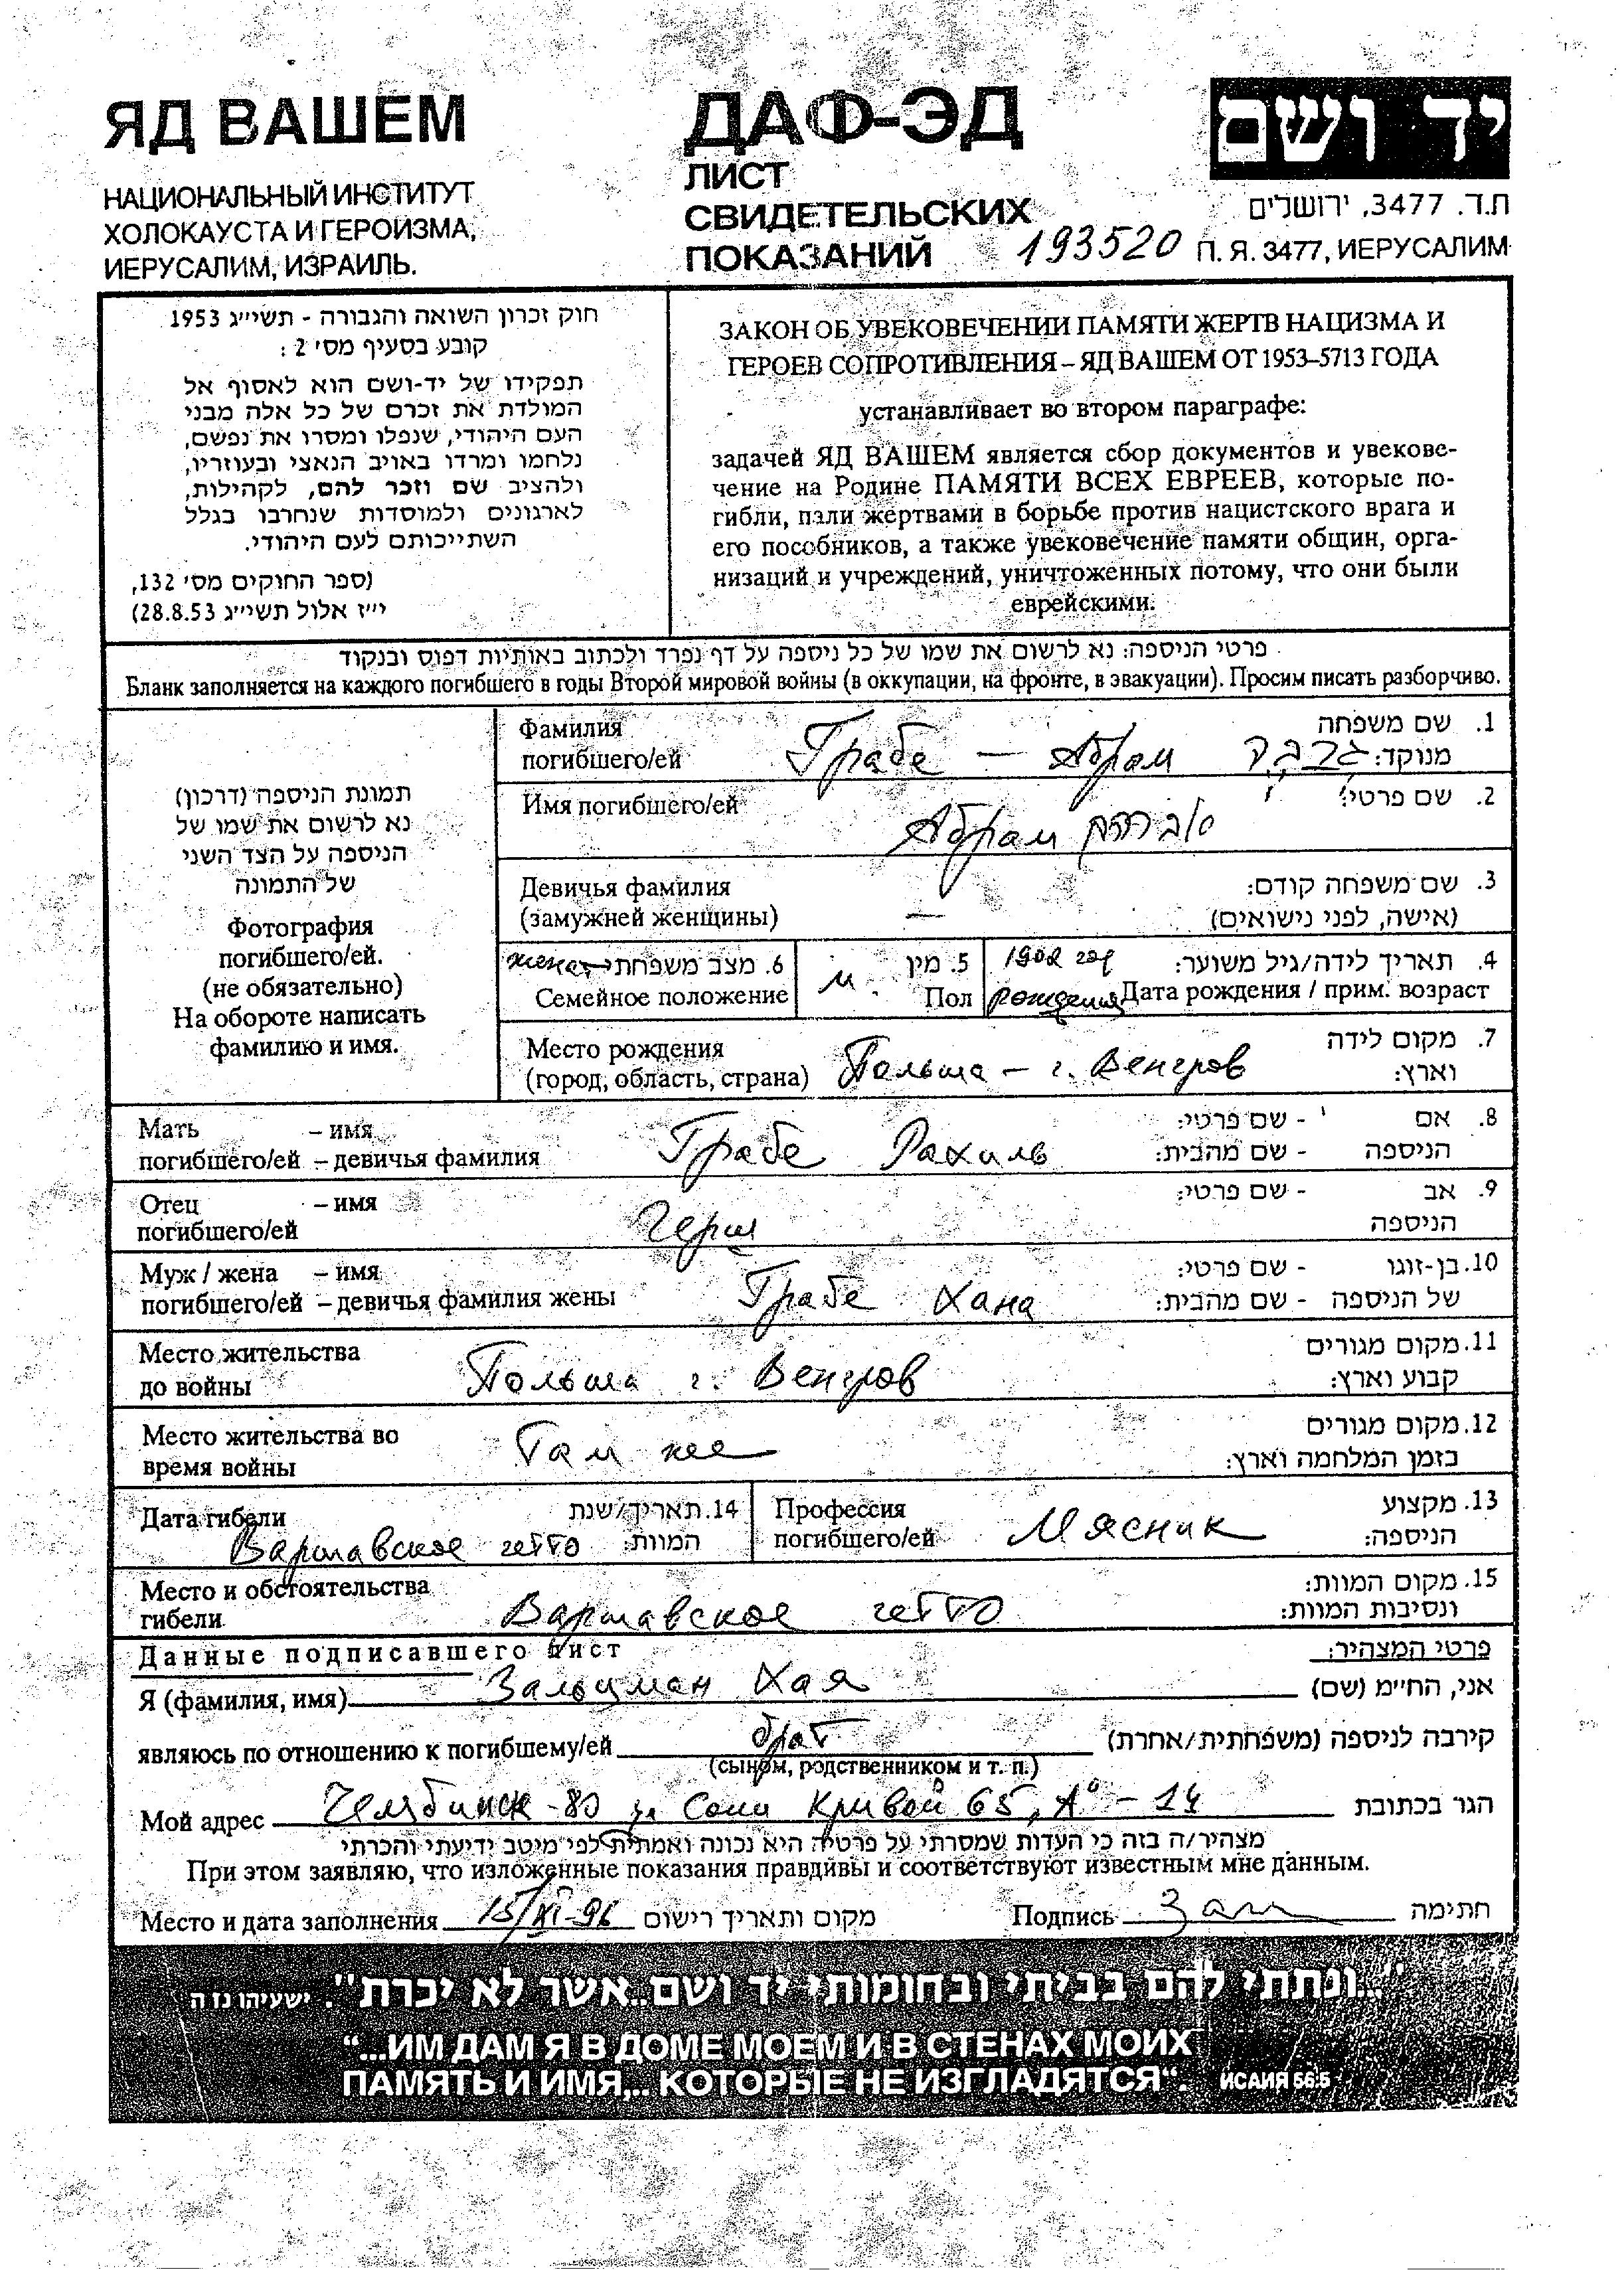 ЯД ВАШЕМ
НАЦИОНАЛЬНЫЙ ИНСТИТУТ
ХОЛОКАУСТА И ГЕРОИЗМА,
ИЕРУСАЛИМ, ИЗРАИЛЬ.
ДАФ-ЭД
ЛИСТ
СВИДЕТЕЛЬСКИХ
ПОКАЗАНИЙ 193520
יד ושם
ת.ד. 3477, ירושלים
П. Я. 3477, ИЕРУСАЛИМ
חוק זכרון השואה והגבורה - תשי״ג 1953
קובע בסעיף מס׳ 2 :
תפקידו של יד-ושם הוא לאסוף אל
המולדת את זכרם של כל אלה מבני
העם היהודי, שנפלו ומסרו את נפשם,
נלחמו ומרדו באויב הנאצי ובעוזריו,
ולהציב שם וזכר להם, לקהילות,
לארגונים ולמוסדות שנחרבו בגלל
השתייכותם לעם היהודי.
(ספר החוקים מס׳ 132,
י״ז אלול תשי״ג 28.8.53)
ЗАКОН ОБ УВЕКОВЕЧЕНИИ ПАМЯТИ ЖЕРТВ НАЦИЗМА И
ГЕРОЕВ СОПРОТИВЛЕНИЯ – ЯД ВАШЕМ ОТ 1953–5713 ГОДА
устанавливает во втором параграфе:
задачей ЯД ВАШЕМ является сбор документов и увекове-
чение на Родине ПАМЯТИ ВСЕХ ЕВРЕЕВ, которые по-
гибли, пали жертвами в борьбе против нацистского врага и
его пособников, а также увековечение памяти общин, орга-
низаций и учреждений, уничтоженных потому, что они были
еврейскими.
פרטי הניספה: נא לרשום את שמו של כל ניספה על דף נפרד ולכתוב באותיות דפוס ובנקוד
Бланк заполняется на каждого погибшего в годы Второй мировой войны (в оккупации, на фронте, в эвакуации). Просим писать разборчиво.
תמונת הניספה (דרכון)
נא לרשום את שמו של
הניספה על הצד השני
של התמונה
Фотография
погибшего/ей.
(не обязательно)
На обороте написать
фамилию и имя.
Фамилия 1. שם משפחה
погибшего/ей Грабе — Абрам מנוקד:
Имя погибшего/ей 2. שם פרטי:
Абрам אברהם
Девичья фамилия 3. שם משפחה קודם:
(замужней женщины) — (אישה, לפני נישואים)
женат 6. מצב משפחתי 5. מין 1902 год 4. תאריך לידה/גיל משוער:
Семейное положение м. Пол рождения Дата рождения / прим. возраст
Место рождения 7. מקום לידה
(город, область, страна) Польша – г. Венгров וארץ:
Мать – имя 8. אם - שם פרטי:
погибшего/ей – девичья фамилия Грабе Рахиль הניספה - שם מהבית:
Отец – имя 9. אב - שם פרטי:
погибшего/ей Герш הניספה
Муж / жена – имя 10. בן-זוגו - שם פרטי:
погибшего/ей – девичья фамилия жены Грабе Хана של הניספה - שם מהבית:
Место жительства 11. מקום מגורים
до войны Польша г. Венгров קבוע וארץ:
Место жительства во 12. מקום מגורים
время войны Там же בזמן המלחמה וארץ:
Дата гибели 14. תאריך/שנת Профессия 13. מקצוע
Варшавское гетто המוות: погибшего/ей Мясник הניספה:
Место и обстоятельства 15. מקום המוות:
гибели Варшавское гетто ונסיבות המוות:
Данные подписавшего лист פרטי המצהיר:
Я (фамилия, имя) Зальцман Хая אני, החיימ (שם)
являюсь по отношению к погибшему/ей брат קירבה לניספה (משפחתית/אחרת)
(сыном, родственником и т. п.)
Мой адрес Челябинск-80 ул Сони Кривой 65, А - 14 הגר בכתובת
מצהיר/ה בזה כי העדות שמסרתי על פרטיה היא נכונה ואמתית לפי מיטב ידיעתי והכרתי
При этом заявляю, что изложенные показания правдивы и соответствуют известным мне данным.
Место и дата заполнения 15/XI-96 מקום ותאריך רישום Подпись חתימה
"...ונתתי להם בביתי ובחומותי יד ושם...אשר לא יכרת". ישעיהו נו ה
“...ИМ ДАМ Я В ДОМЕ МОЕМ И В СТЕНАХ МОИХ
ПАМЯТЬ И ИМЯ... КОТОРЫЕ НЕ ИЗГЛАДЯТСЯ”. ИСАИЯ 56:5